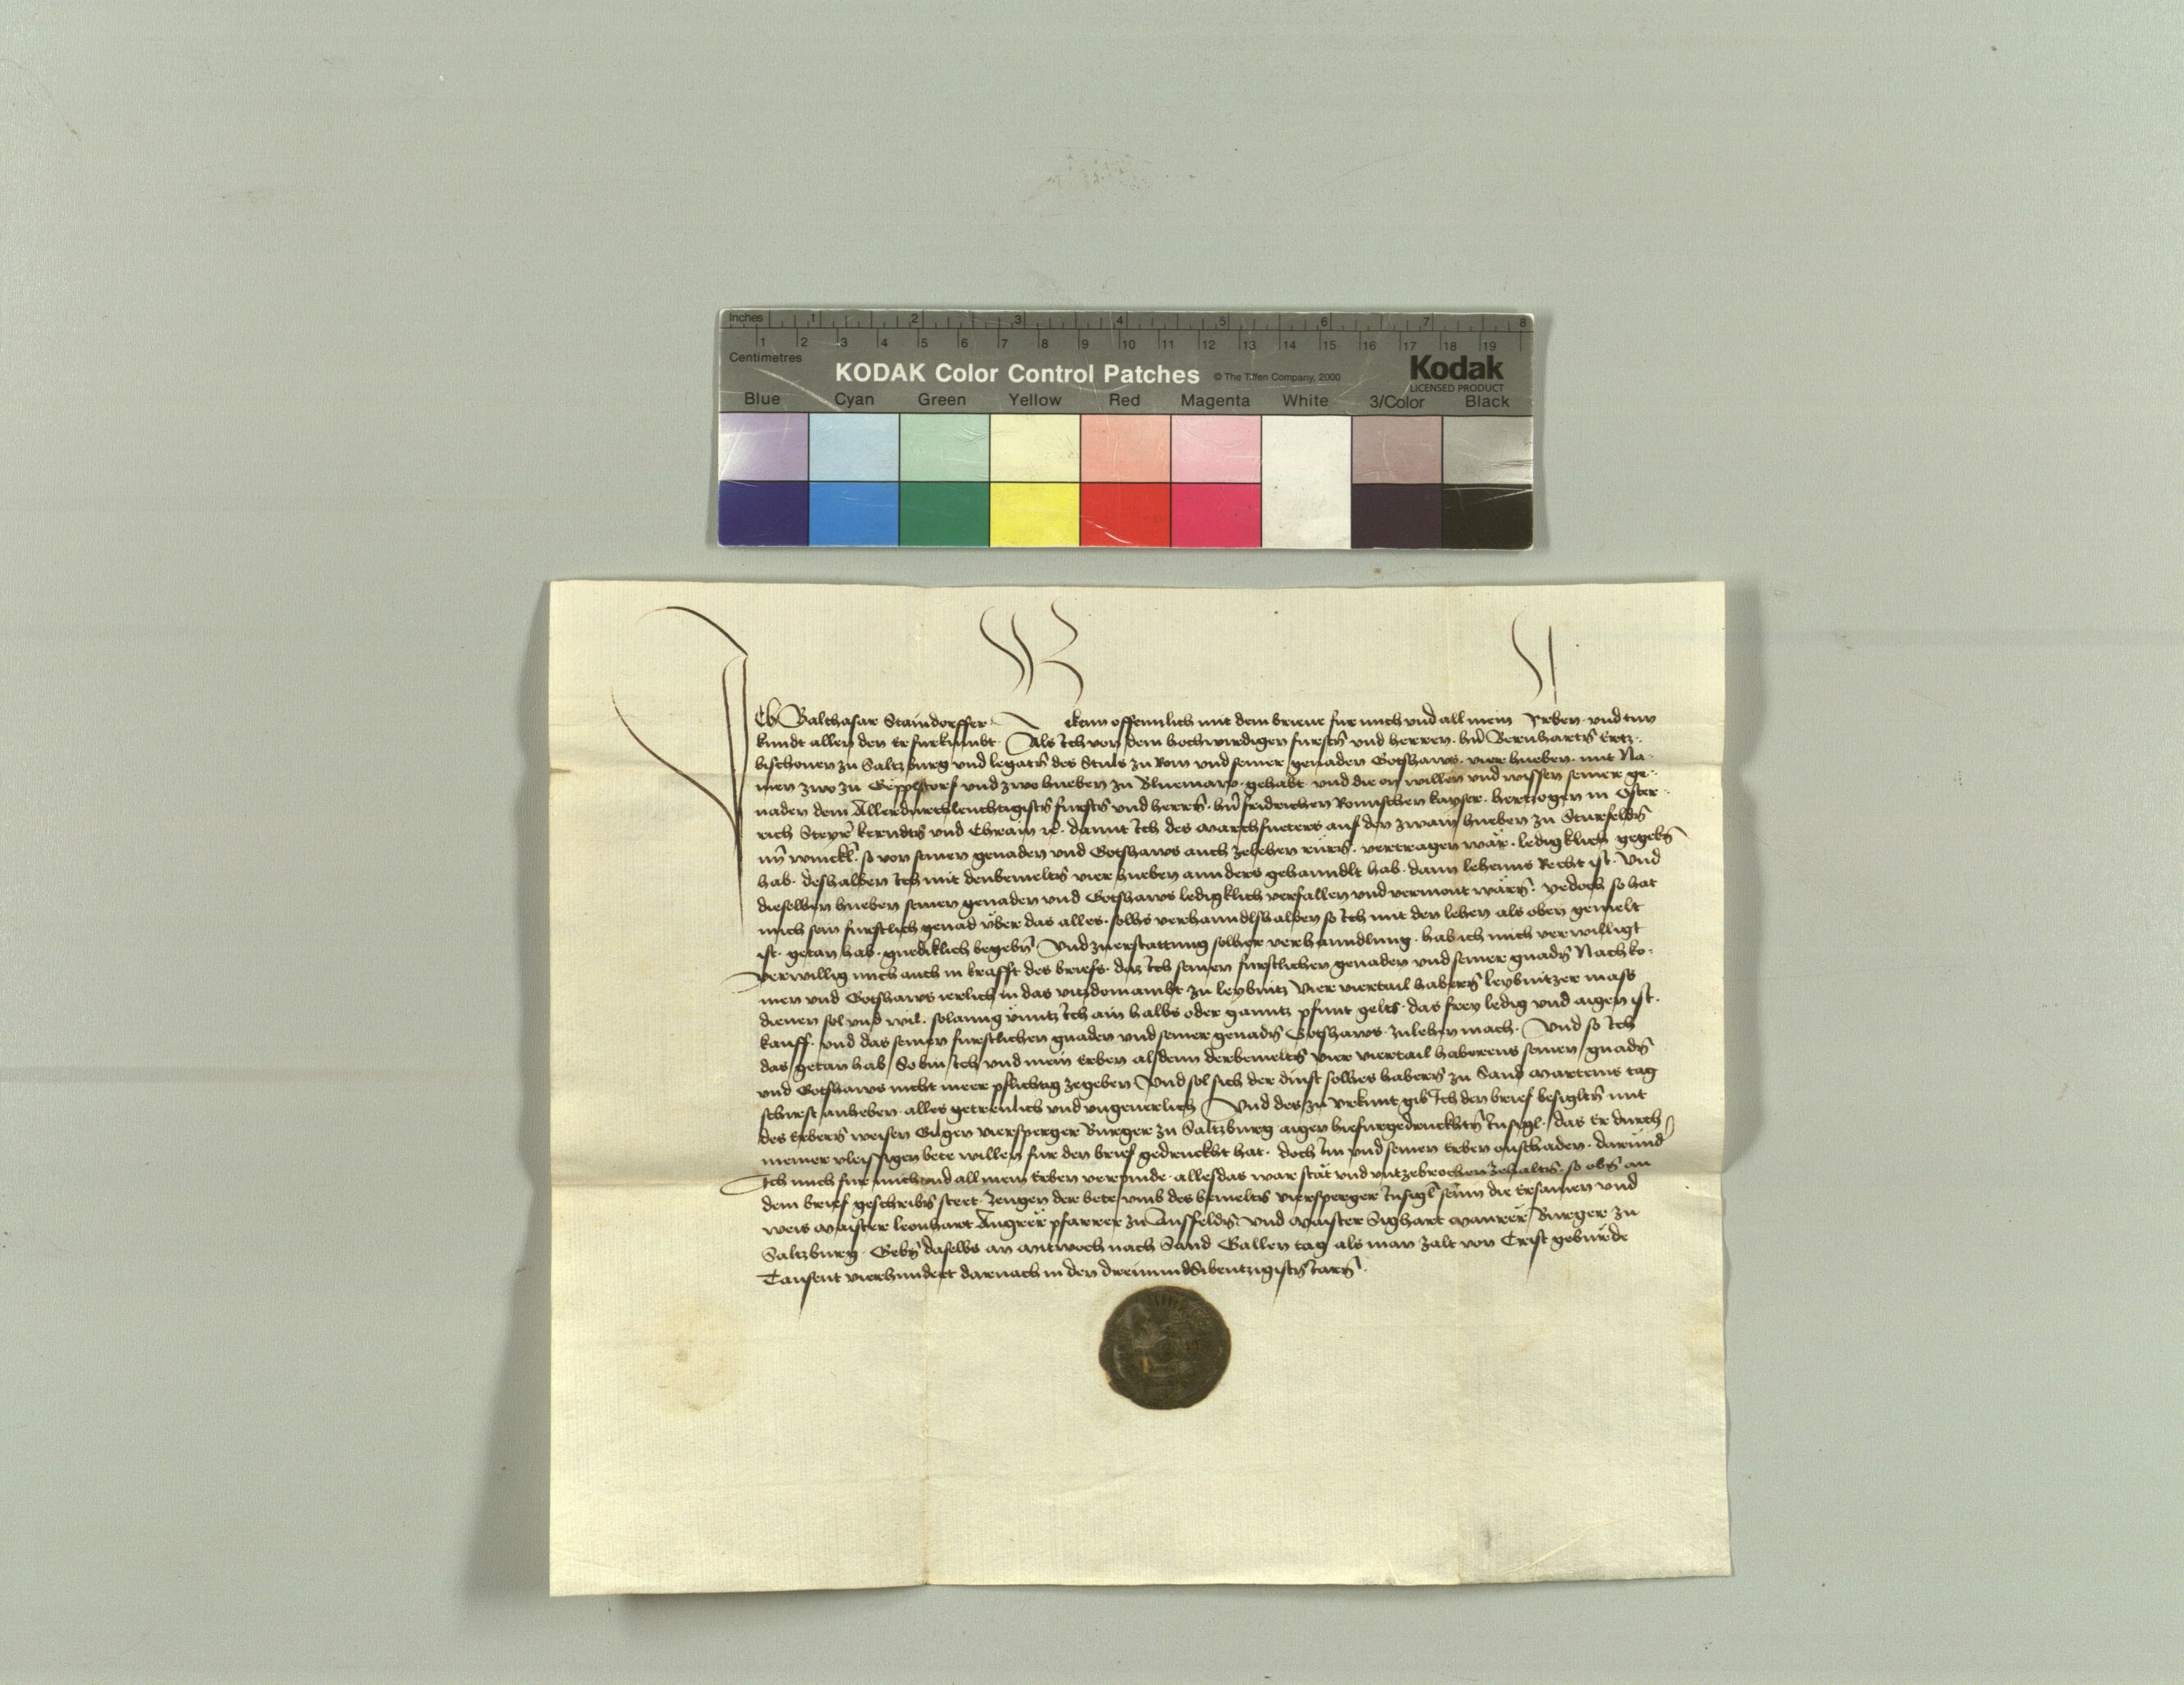 Inches 1 2 3 4 5 6 7 8
1 2 3 4 5 6 7 8 9 10 11 12 13 14 15 16 17 18 19
Centimetres
KODAK Color Control Patches © The Tiffen Company, 2000 Kodak
LICENSED PRODUCT
Blue Cyan Green Yellow Red Magenta White 3/Color Black
Ich Balthasar Staindorffer Bekenn offennlich mit dem brieue fur mich vnd all mein Erben. vnd tun
kundt allen den Er furkumbt. Als Ich von dem hochwirdigen fursten vnd herren. hern Bernharten Ertz-
bischouen zu Saltzburg vnd legaten des Stuls zu Rom vnd seiner genaden Gotshaws. vier hueben. mit Na-
men zwo zu Gepplstorf vnd zwo hueben zu Bluemaw. gehabt. vnd die on willen vnd wissen seiner ge-
naden dem Allerdurchleuchtigisten fursten vnd herren. hern fridrichen Romischen kayser. hertzogen in Oster-
rich Steyr kerndten vnd Chrain etc. damit Ich des marchfueters auf den zwain hueben zu
im winckl. so von seinen genaden vnd Gotshaws auch zelehen ruren. vertragen wär. ledigklich gegeben
hab. deshalben Ich mit den bemelten vier hueben annders gehanndlt hab. dann lehenns Recht ist. Vnd
dieselben hueben seinen genaden vnd Gotshaws ledigklich verfallen vnd vermont wären. yedoch so hat
mich sein furstlich genad vber das alles. solhs verhanndlshalben so Ich mit den lehen als oben gemelt
ist. getan hab. gnediklich begeben Vnd zuerstattung solher verhanndlung. hab ich mich verwilligt
verwillig mich auch in krafft des briefs. daz Ich seinen furstlichen genaden vnd seiner gnaden Nachko-
men vnd Gotshaws ierlich in das vitzdomambt zu leybnitz vier viertail habern leybnitzer mass
dienen sol vnd wil. solanng vnntz Ich ain halbs oder ganntz pfunt gelts. das frey ledig vnd aigen ist.
kauff. vnd das seinen furstlichen gnaden vnd seiner genaden Gotshaws. zulehen mach. Vnd so Ich
das getan hab So bin Ich vnd mein Erben alsdenn der bemelten vier viertail haberens seinen gnaden
vnd Gotshaws nicht meer pflichtig zegeben Vnd sol sich der dinst solhes habern zu Sand Marteins tag
schirist anheben. alles getreulich vnd vngeuerlich Vnd des zu vrkunt gib Ich den brief besiglten mit
des Erbern weisen Gilgen viersperger Burger zu Saltzburg aigen hiefurgedruckhten Insigl. das Er durch
meiner vleissigen bete willen fur den brief gedruckht hat. doch Im vnd seinen Erben onschaden. darund
Ich mich fur mich vnd all mein Erben verpinde. alles das war stät vnd vntzebrochen zehalten. so oben an
dem brief geschriben steet. Zeugen der bete vmb des bemelten viersperger Insigl sein die Ersamen vnd
weis Maister leonhart Angrer pfarrer zu Anffelden. vnd Maister Sighart Maurer Burger zu
Saltzburg. Geben daselbs an mitwoch nach Sand Gallen tag als man zalt von Crist geburde
Tausent vierhundert darnach in den dreiundSibentzigisten Iaren